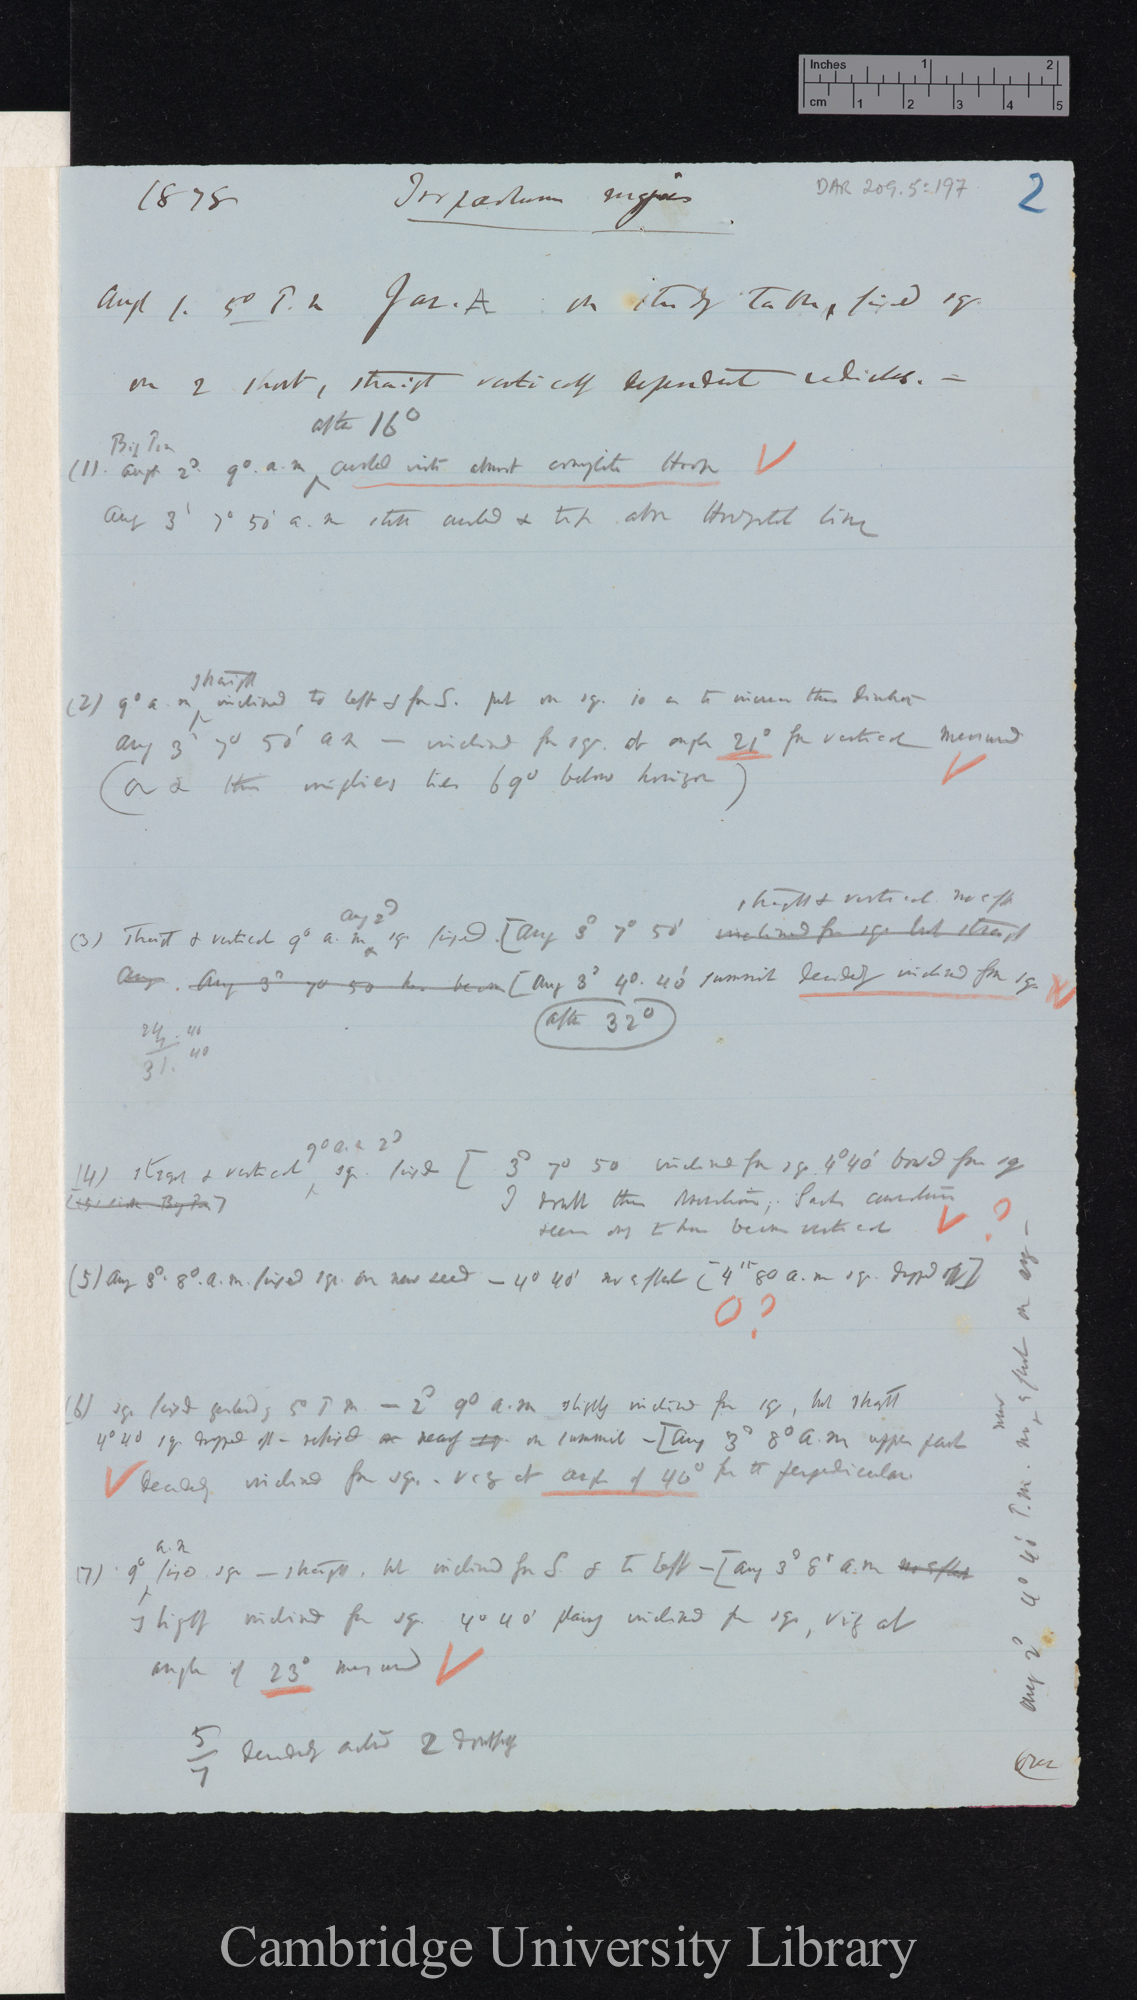 Inches 1 2
cm 1 2 3 4 5
1878 Tropaeolum majus DAR 209.5:197 2
Augt 1. 5° P.m Jar. A on study table, fixed sqs
on 2 short, straight vertically dependent radicles. =
after 16°
Big Tin
(1). Augt 2d. 9° a.m curled into almost complete Hook
Aug 3d 7° 50' a.m still curled & tip above Horizontal line
straight
(2) 9° a.m inclined to left & from S. put on sq. so as to increase this direction
Aug 3d 7° 50' a m — inclined from sqs. at angle 21° from vertical measured
(or & this implies lies 69° below horizon)
straight & vertical no eff
Aug 2d
(3) straight & vertical 9° a.m sq fixed. [Aug 3d 7° 50' inclined from sqs but straight
Aug. Aug 3d 7° 50 has been [Aug 3d 4°. 40' summit decidedly inclined from sq.
after 32°
24. 40
31. 40
9° a.m 2d
(4) straight & vertical, sq. fixed [ 3d 7° 50 inclined from sq. 4° 40' bowed from sq
I doubt this direction; Such curvature
seem only to have become vertical
?
(5) Aug 3d. 8°. a.m. fixed sqs. on new seed — 4° 40' no effect [4th 8° a.m sq. dropped off]
0?
(6) sqs fixed yesterday 5° P m. — 2d 9° a.m slightly inclined from sq, but straight
4° 40 sq. dropped off — refixed on summit — [Aug 3d 8° a.m upper part
decidedly inclined from sqs. viz at angle of 46° from the perpendicular
a.m
(7) 9° fixed sqs — straight, but inclined from S. & to left — [Aug 3d 8° a.m no effect
slightly inclined from sqs. 4° 40' plainly inclined from sqs, viz at
angle of 23° measured
5/7 decidedly acted 2 doubtful
Aug 2d 4° 40' P.m. no effect on any —
now
Over
Cambridge University Library